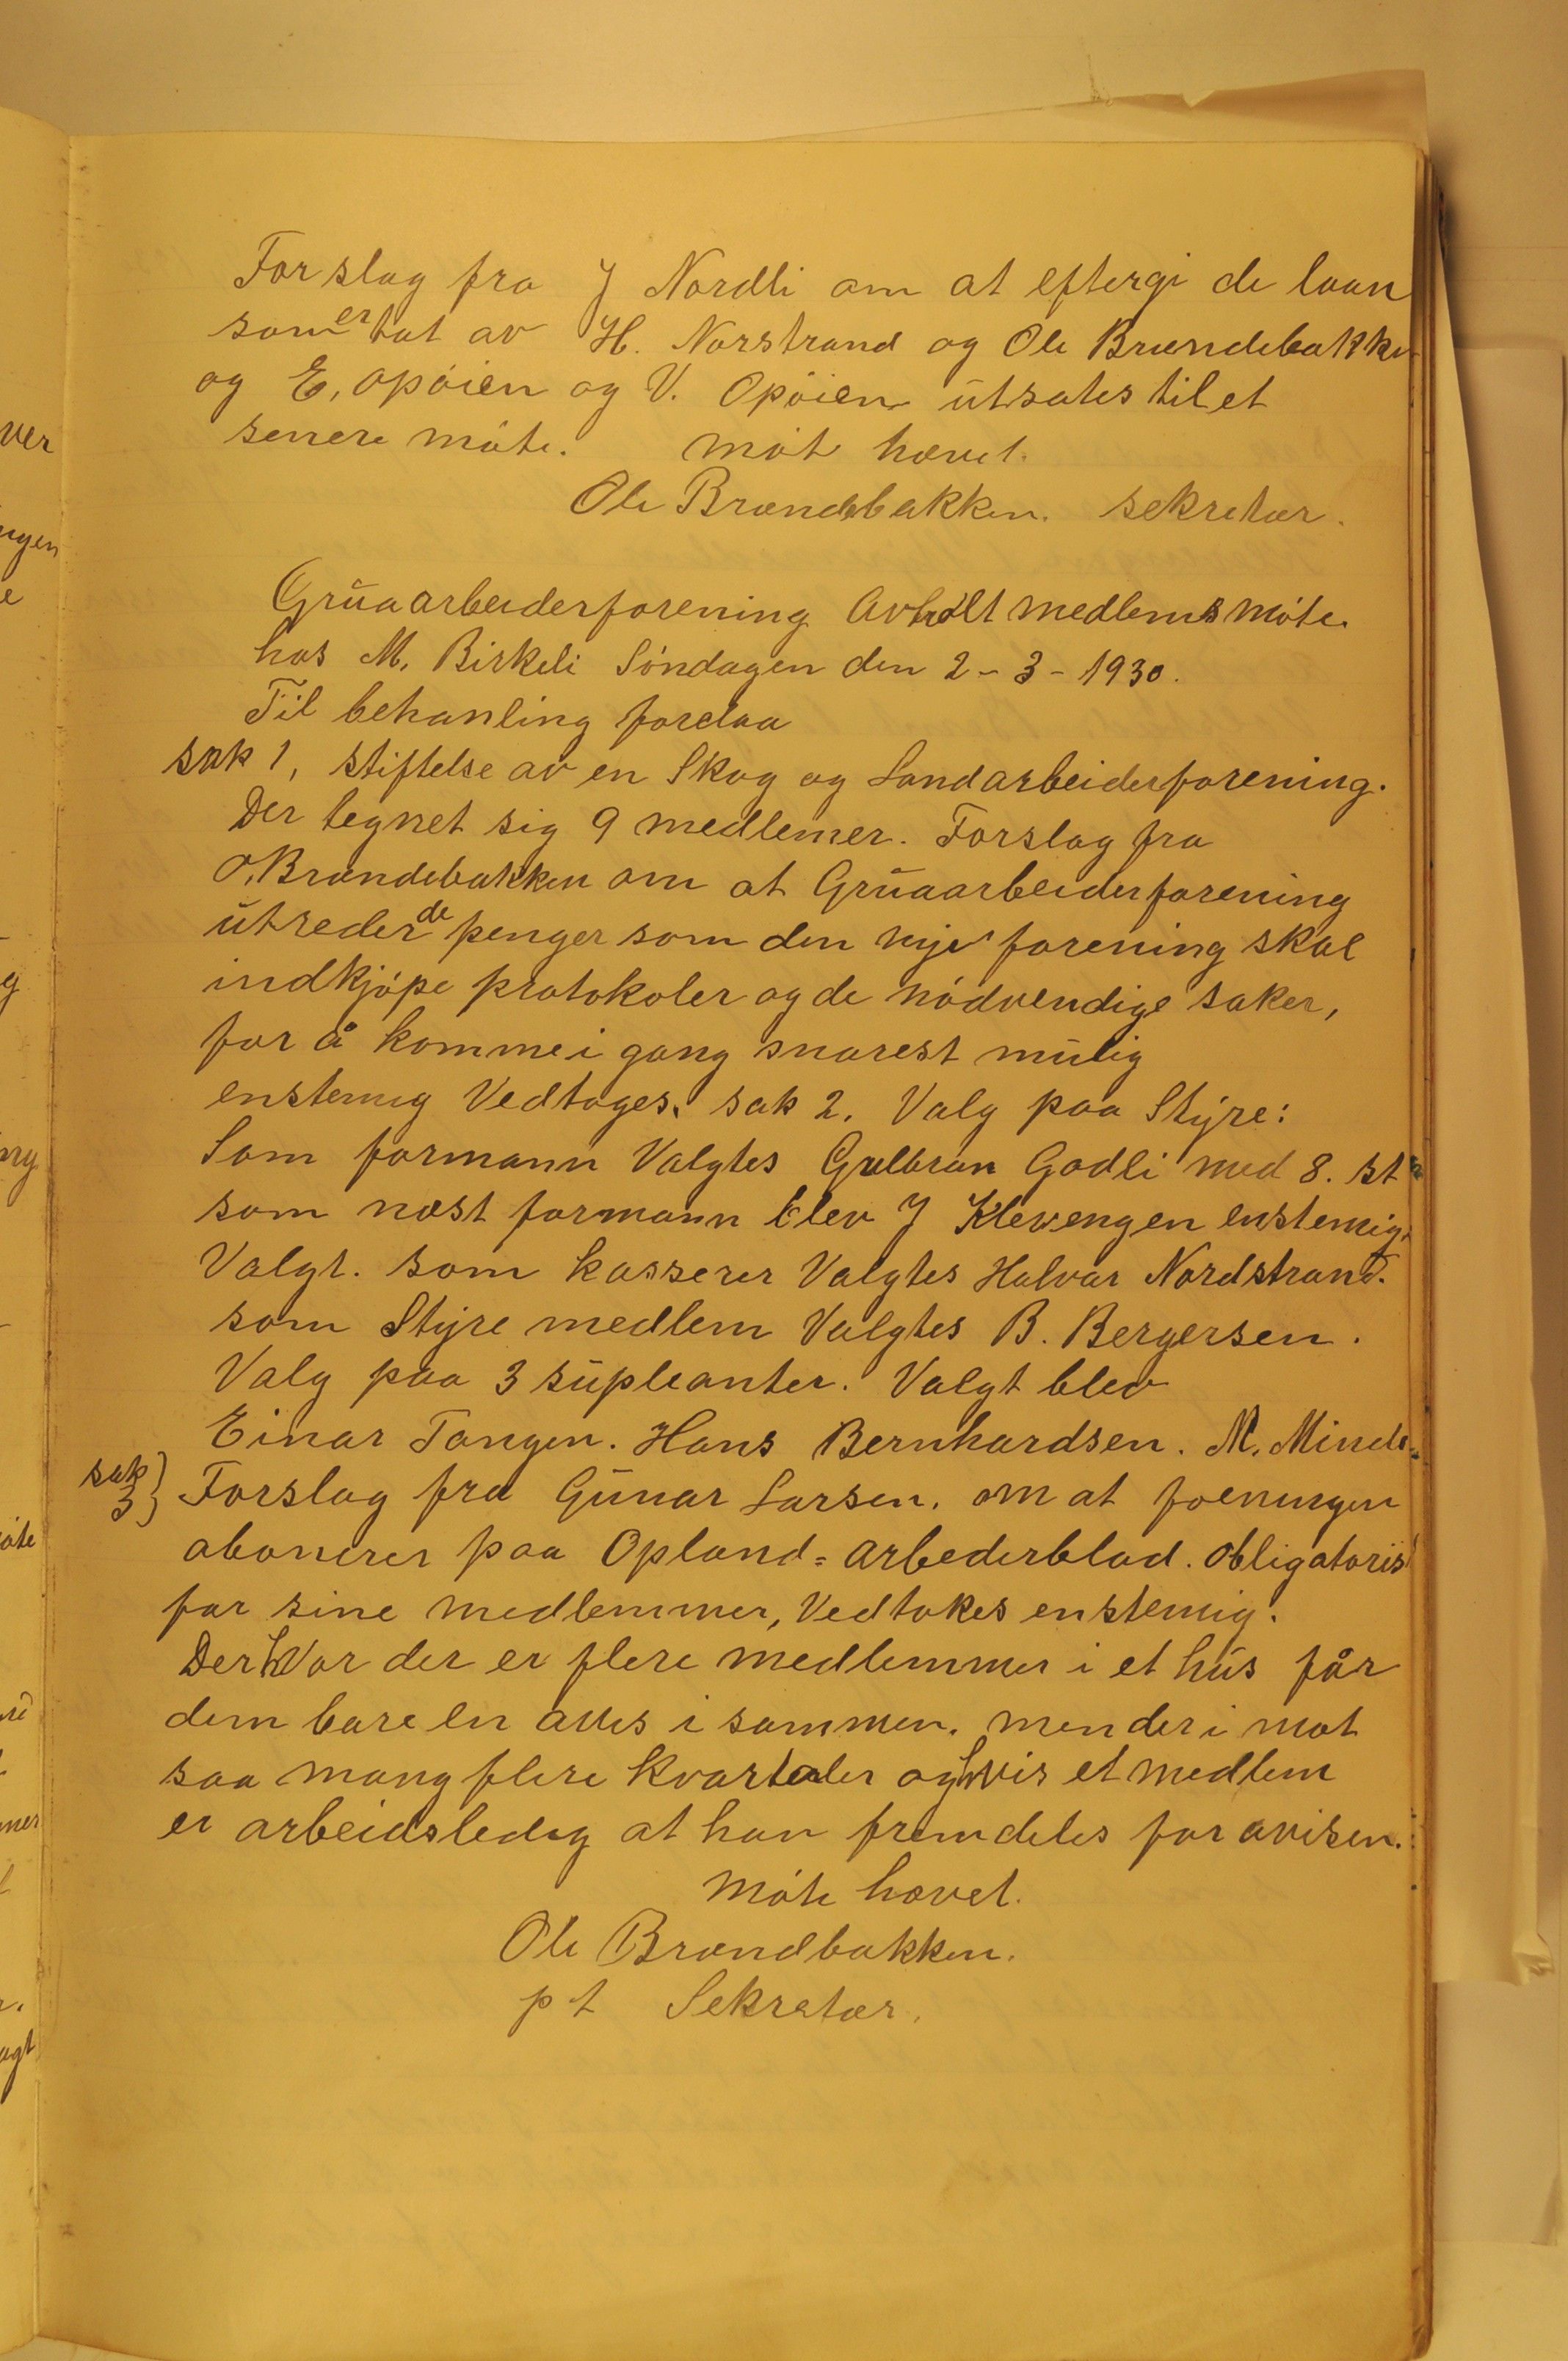 Forslag fra J Nordli om at eftergi de laan
som er tat av H. Norstrand og Ole Brændebakken
og E, opøien og V. Opøien utsates til et
senere møte. møt hævet.
Ole Brændebakken. sekretær.
Gruaarbeiderforening Avholt medlems møte.
hos M. Birkeli Søndagen den 2-3-1930.
Til behanling forelaa
sak 1, stiftelse av en Skog og Landarbeiderforening.
Der tegnet sig 9 medlemer. Forslag fra
O, Brændebakken om at Gruaarbeiderforening
utreder de penger som den nye forening skal
indkjøpe protokoler og de nødvendige saker,
for å komme i gang snarest mulig
enstemig Vedtages. sak 2. Valg paa Styre:
Som formann Valgtes Gulbran Godli med 8. st
som næst formann blev J Klevengen enstemig
Valgt. som kasserer Valgtes Halvar Nordstrand.
som Styre medlem Valgtes B. Bergersen.
Valg paa 3 supleanter. Valgt blev
Einar Tangen. Hans Bernhardsen. M. Minde
sak 3} Forslag fra Gunar Larsen. om at foeningen
abonerer paa Opland = arbederblad. obligatoris
for sine medlemmer, Vedtokes enstemig.
Der hvor der er flere medlemmer i et hus får
dem bare en avis i sammen. men der i mot
saa mang flere kvartaler og hvis et medlem
er arbeidsledig at han fremdeles far avisen.
Møte hævet.
Ole Brændbakken.
pt Sekretær.
ver
ngen
e
g
ng
øte
mer
agt